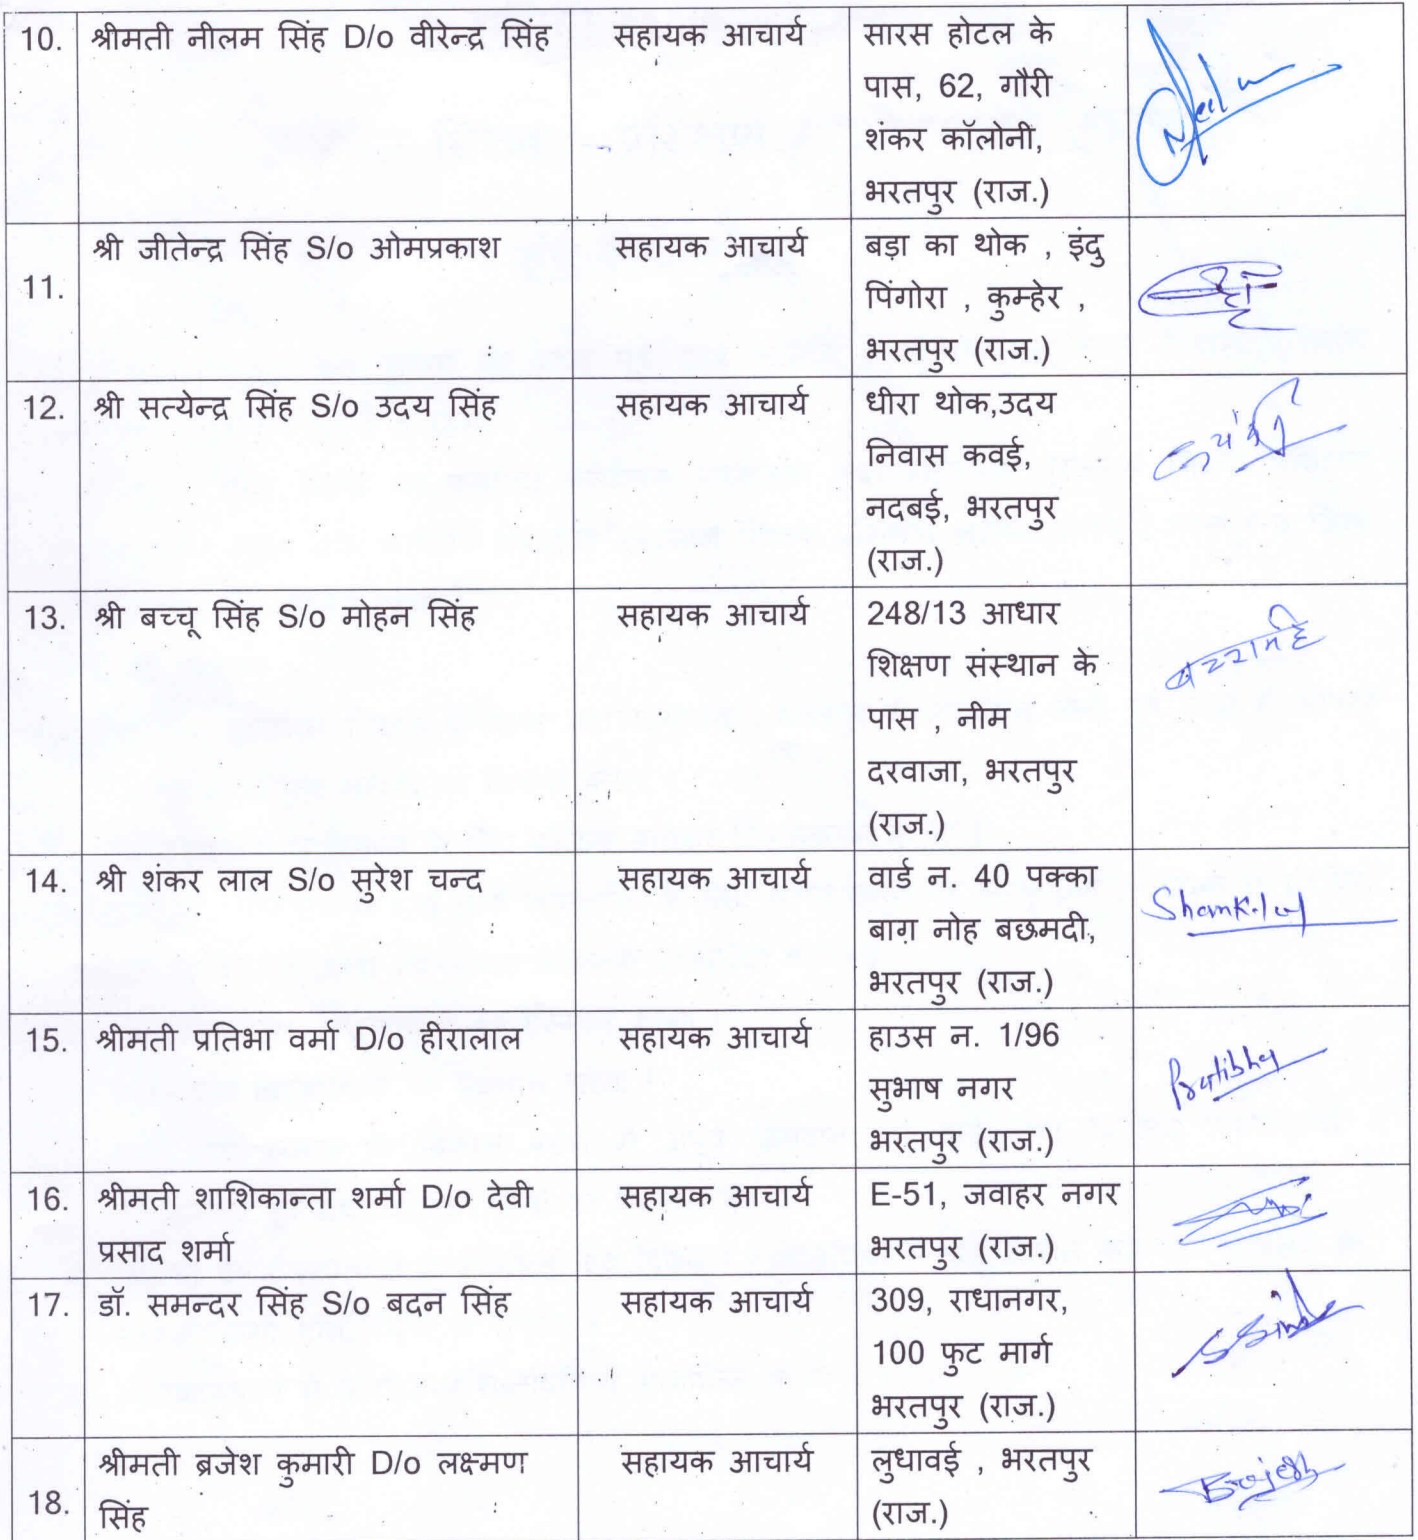 10. श्रीमती नीलम सिंह D/o वीरेन्द्र सिंह सहायक आचार्य सारस होटल के
पास, 62, गौरी
शंकर कॉलोनी,
भरतपुर (राज.)
Neelu
11. श्री जीतेन्द्र सिंह S/o ओमप्रकाश सहायक आचार्य बड़ा का थोक , इंदु
पिंगोरा , कुम्हेर ,
भरतपुर (राज.)
12. श्री सत्येन्द्र सिंह S/o उदय सिंह सहायक आचार्य धीरा थोक,उदय
निवास कवई,
नदबई, भरतपुर
(राज.)
13. श्री बच्चू सिंह S/o मोहन सिंह सहायक आचार्य 248/13 आधार
शिक्षण संस्थान के
पास , नीम
दरवाजा, भरतपुर
(राज.)
14. श्री शंकर लाल S/o सुरेश चन्द सहायक आचार्य वार्ड न. 40 पक्का
बाग़ नोह बछमदी,
भरतपुर (राज.)
15. श्रीमती प्रतिभा वर्मा D/o हीरालाल सहायक आचार्य हाउस न. 1/96
सुभाष नगर
भरतपुर (राज.)
Pratibha
16. श्रीमती शाशिकान्ता शर्मा D/o देवी सहायक आचार्य E-51, जवाहर नगर
प्रसाद शर्मा भरतपुर (राज.)
17. डॉ. समन्दर सिंह S/o बदन सिंह सहायक आचार्य 309, राधानगर,
100 फुट मार्ग
भरतपुर (राज.)
18. श्रीमती ब्रजेश कुमारी D/o लक्ष्मण सहायक आचार्य लुधावई , भरतपुर
सिंह (राज.)
Brajesh